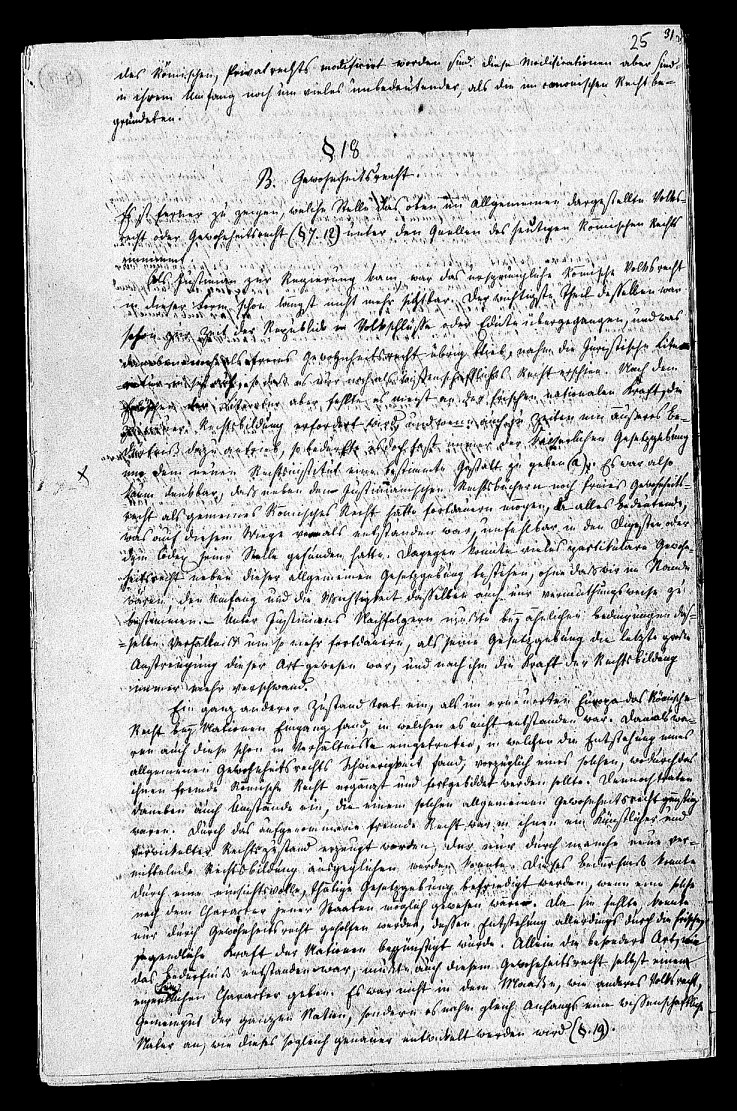 25 31.
des Römischen Privatrechts modificirt worden sind, diese Modificationen aber sind
in ihrem Umfang noch um vieles unbedeutender, als die im canonischen Recht be-
gründeten.
§ 18
B. Gewohnheitsrecht.
Es ist ferner zu zeigen, welche Stelle das oben im Allgemeinen dargestellte Volks-
recht oder Gewohnheitsrecht (§ 7. 12) unter den Quellen des heutigen Römischen Rechts
einnimmt
Als Justinian zur Regierung kam, war das ursprüngliche Römische Volksrecht
in dieser Form schon längst nicht mehr sichtbar. Der wichtigste Theil desselben war
schon zur Zeit der Republik in Volksschlüsse oder Edicte übergegangen, und was
als freies Gewohnheitsrecht übrig blieb, nahm die juristische Lite-
ratur in sich auf, so daß es nur noch als wissenschaftliches Recht erschien. Nach dem
der Literatur aber fehlte es meist an der frischen nationalen Kraft, die
Rechtsbildung erfordert wird, und wenn auch zu Zeiten ein äußeres Be-
dürfniß dazu antrieb, so bedurfte es doch fast immer der Kaiserlichen Gesetzgebung
um dem neuen Rechtsinstitut eine bestimmte Gestalt zu geben (a). Es war also
kaum denkbar, daß neben den Justinianischen Rechtsbüchern noch freies Gewohnheits-
recht als gemeines Römisches Recht hätte fortdauern mögen, da alles Bedeutende,
was auf diesem Wege vormals entstanden war, unfehlbar in den Digesten oder
dem Codex seine Stelle gefunden hatte. Dagegen konnte vieles particuläre Gewohn-
heitsrecht neben dieser allgemeinen Gesetzgebung bestehen, ohne daß wir im Stande
wären, den Umfang und die Wichtigkeit desselben auch nur vermuthungsweise zu
bestimmen. – Unter Justinians Nachfolgern mußte bey ähnlichen Bedingungen das-
selbe Verhältniß um so mehr fortdauern, als seine Gesetzgebung die letzte große
Anstrengung dieser Art gewesen war, und nach ihm die Kraft der Rechtsbildung
immer mehr verschwand.
Ein ganz anderer Zustand trat ein, als im erneuerten Europa das Römische
Recht bey Nationen Eingang fand, in welchen es nicht entstanden war. Damals wa-
ren auch diese schon in Verhältnisse eingetreten, in welchen die Entstehung eines
allgemeinen Gewohnheitsrechts Schwierigkeit fand, vorzüglich eines solchen, wodurch das
ihnen fremde Römische Recht ergänzt und fortgebildet werden sollte. Dennoch traten
daneben auch Umstände ein, die einem solchen allgemeinen Gewohnheitsrecht günstig
waren. Durch das aufgenommene fremde Recht war in ihnen ein künstlicher und
verwickelter Rechtszustand erzeugt worden, der nur durch manche neue ver-
mittelnde Rechtsbildung ausgeglichen werden konnte. Dieses Bedürfniß konnte
durch eine einsichtsvolle, thätige Gesetzgebung befriedigt werden, wenn eine solche
nach dem Character jener Staaten möglich gewesen wäre. Da sie fehlte, konnte
nur durch Gewohnheitsrecht geholfen werden, dessen Entstehung allerdings durch die frische
jugendliche Kraft der Nationen begünstigt wurde. Allein die besondere Art, wie
das Bedürfniß entstanden war, mußte auch diesem Gewohnheitsrecht selbst einen
eigentlichen Character geben. Es war nicht in dem Maaße, wie anderes Volksrecht,
Gemeingut der ganzen Nation, sondern es nahm gleich Anfangs eine wissenschaftliche
Natur an, wie dieses sogleich genauer entwickelt werden wird (§. 19).